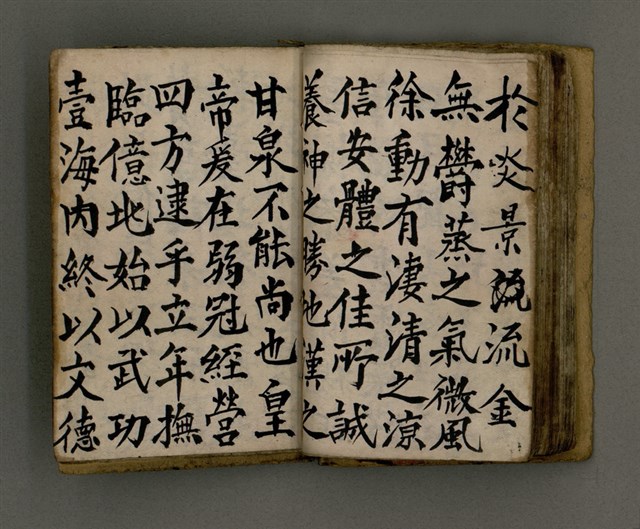 於炎景流金
無欝蒸之氣微風
徐動有淒清之涼
信安體之佳所誠
養神之勝地漢之
甘泉不能尚也皇
帝爰在弱冠經營
四方逮乎立年撫
臨億地始以武功
壹海內終以文德